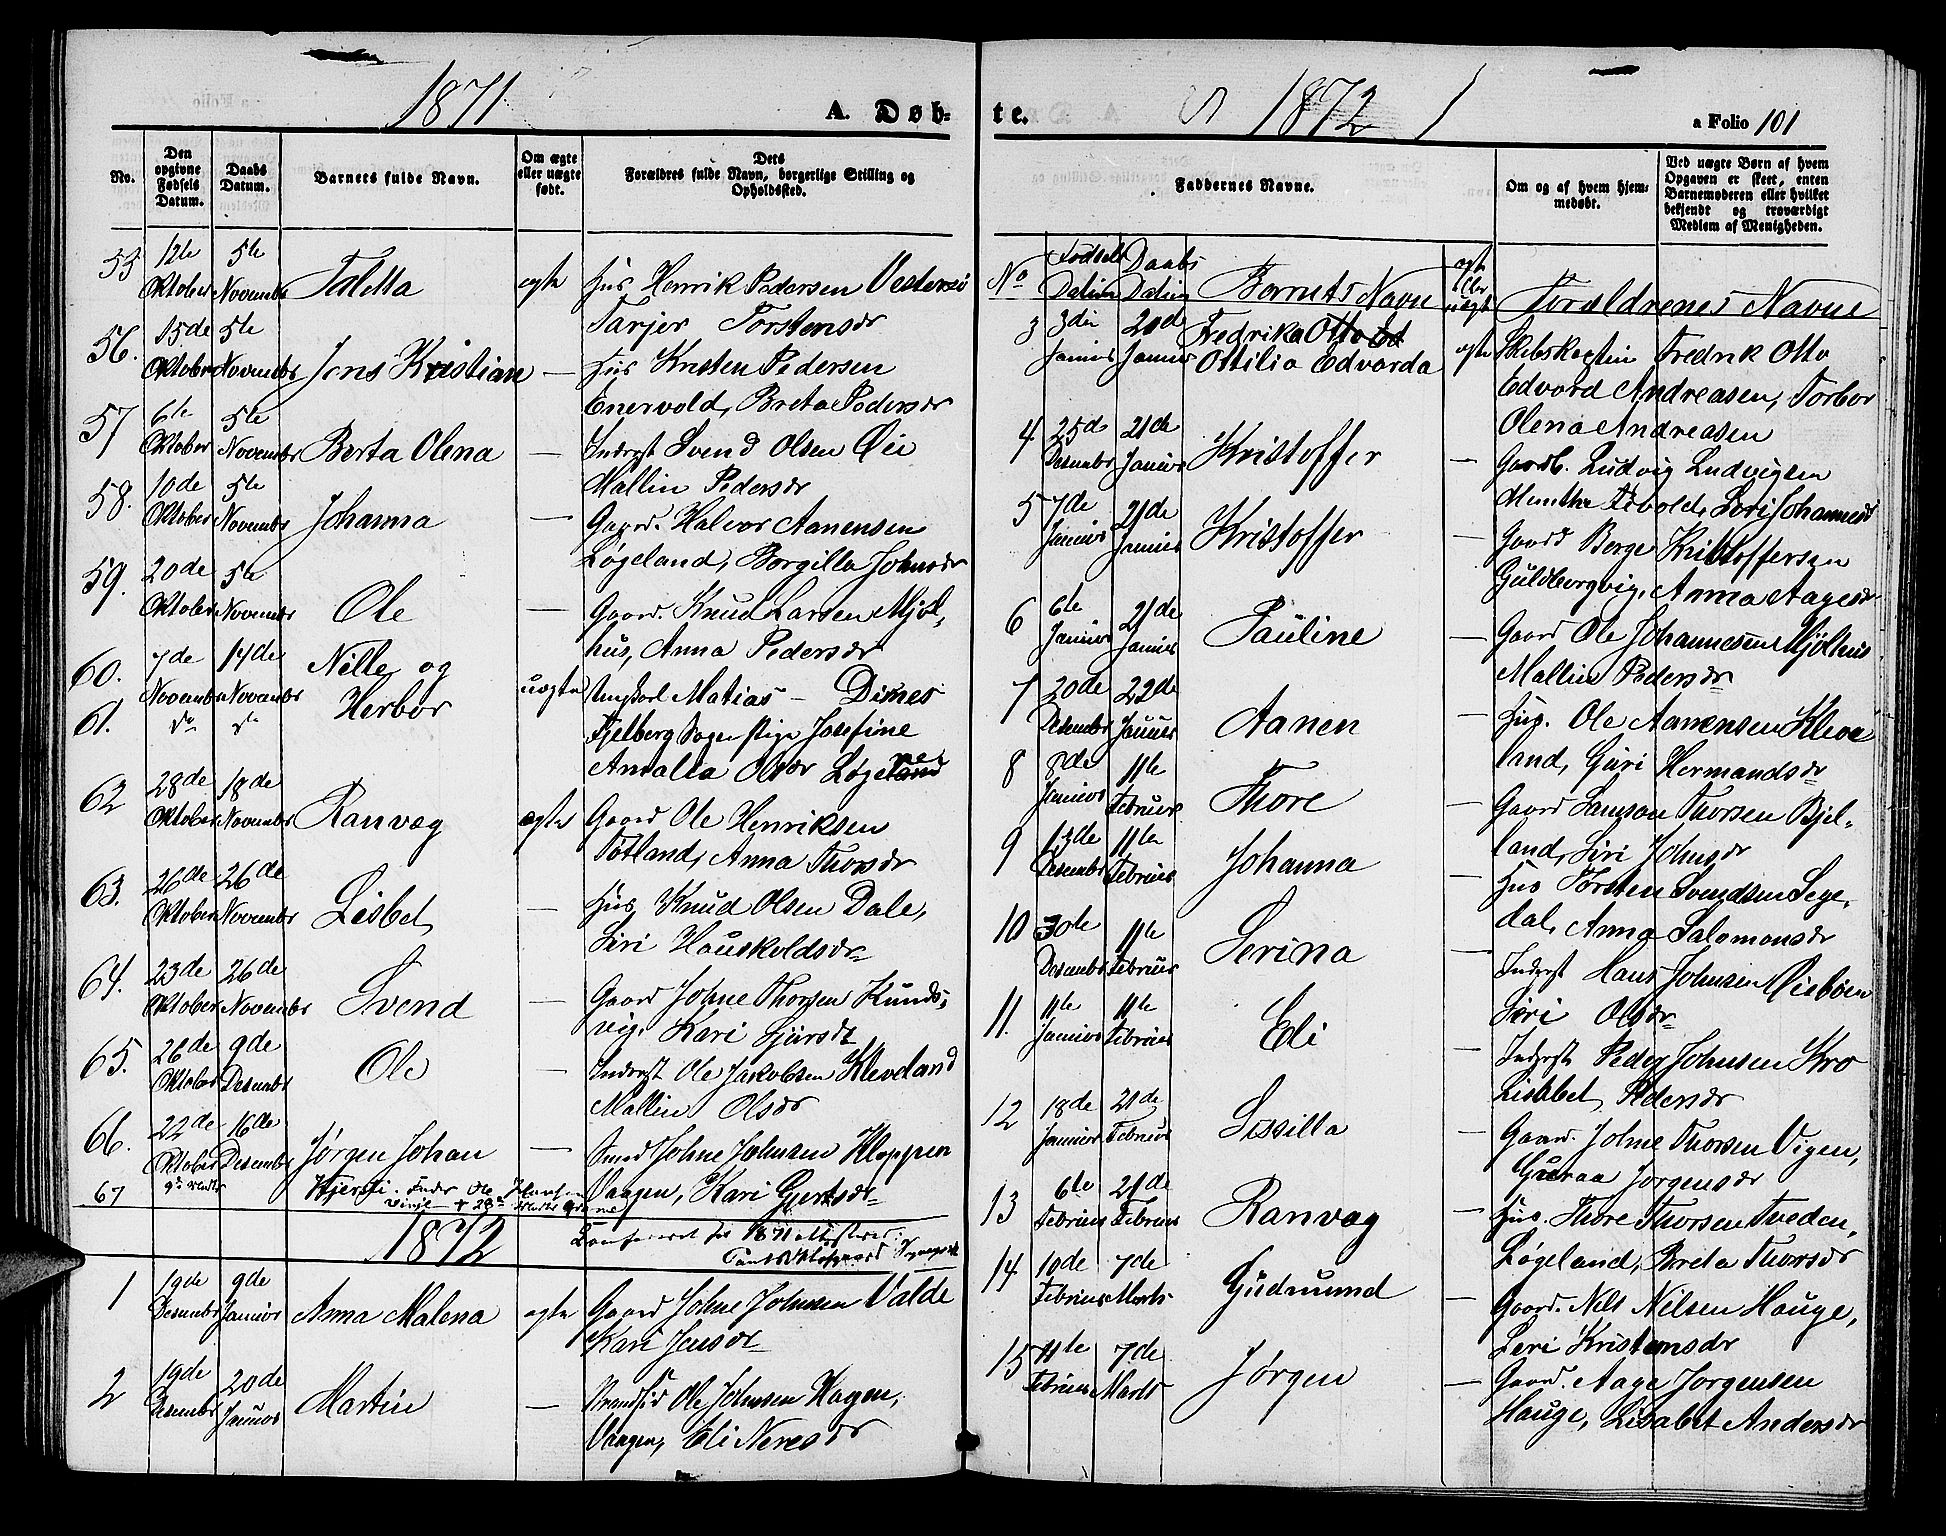 1871
A. Døb-
No.
Den opgivne Fødsels Datum.
Daabs Datum.
Barnets fulde Navn.
Om ægte eller uægte født.
Dets Forældres fulde Navn, borgerlige Stilling og Opholdssted.
55 12te Oktober 5te Novembr Taletta ægte Hus Henrik Pedersen Vestersiø
Tarjer Torstensdr
56. 15de Oktober 5te Novembr Jens Kristian — Hus Kristen Pedersen
Enervold, Breta Pedersdr
57 6te Oktober 5te Novembr Berta Olena — Inderst Svend Olsen Øie
Mallin Pedersdr
58. 10de Oktober 5te Novembr Johanna — Gaard. Halvor Aanensen
Løgeland, Borgilla Johnsdr
59. 20de Oktober 5te Novembr Ole — Gaard. Knud Larsen Mjøl-
hus, Anna Pedersdr
60. 7de Novembr 14de Novembr Nille og
61. do do Herbor uægte Ungkarl Matias — Dimes
Fjelberg Sogn Pige Josefine
Amalia Olsdr Løgeland
62 28de Oktober 18de Novembr Ranvæg ægte Gaard Ole Henriksen
Totland, Anna Thorsdr
63. 26de Oktober 26de Novembr Lisbet — Hus Knud Olsen Dale,
Siri Houskoldsdr
64. 23de Oktober 26de Novembr Svend — Gaard Johne Thorsen Kunds-
vig, Kari Sjursdr
65. 26de Oktober 9de Desembr Ole — Inderst Ole Jakobsen Kleveland
Mallin Olsdr
66. 22de Oktober 16de Desembr Jørgen Johan — Strand Johne Johnsen Kloppen
Vaagen, Kari Gjertsdr
67 Kjersti. Inder Ole Hansen
1872
Konfereret for 1871 attesteres:
1 19de Desembr 9de Januar Anna Malena ægte Gaard Johne Johnsen Valde
Kari Jensdr
2 19de Desembr 20de Januar Martin — Strandsid Ole Johnsen Hagen,
Vaagen, Eli Neresdr
te.
1872
a Folio 101
Faddernes Navne.
Om og af hvem hjemmedøbt.
Ved uægte Børn af hvem Opgaven er skeet, enten Barnemoderen eller hvilket bekjendt og troværdigt Medlem af Menigheden.
No Fødsels Datum Daabs Datum Barnets Navn ægte eller uægt Foraldrenes Navne
3 3die Januar 20de Januar Fredrika Otto Ed
Ottilia Edvarda ægte Skibskaptin Fredrik Otto
Edvard Andreasen, Torbor
Olena Andreasen
4 25de Desembr 21de Januar Kristoffer — Gaardb. Ludvig Ludvigsen
Munthe Tivold, Sori Johannesd
5 7de Januar 21de Januar Kristoffer — Gaard Berge Kristoffersen
Guldbergvig, Anna Aagesdr
6 6te Januar 21de Januar Pauline — Gaard Ole Johannesen Mjølhus
Mallin Pedersdr
7 20de Desembr 22de Januar Aanen — Hus. Ole Aanensen Kleve
land, Guri Hermandsdr
8 8de Januar 11te Februar Thore — Gaard Samson Thorsen Bjel-
land, Siri Johnsdr
9 13de Desembr 11te Februar Johanna — Hus Torsten Svendsen Sege-
dal, Anna Salomonsdr
10 30te Desembr 11te Februar Serina — Inderst Hans Johnsen Øiebøen
Siri Olsdr
11. 11te Januar 11te Februar Eli — Inderst Peder Johnsen Kro
Lisabet Pedersdr
12 18de Januar 21de Februar Sissilla — Gaard. Johne Thorsen Vigen,
Guraa Jorgensdr
13 6te Februar 21de Februar Ranvæg — Hus. Thore Thorsen Tveden,
Løgeland, Breta Thorsdr
14 10de Februar 7de Marts Gudmund — Gaard. Nils Nilsen Hauge,
Seri Kristensdr
15 11te Februar 7de Marts Jørgen — Gaard. Aage Jorgensen
Hauge, Lisabet Andersdr